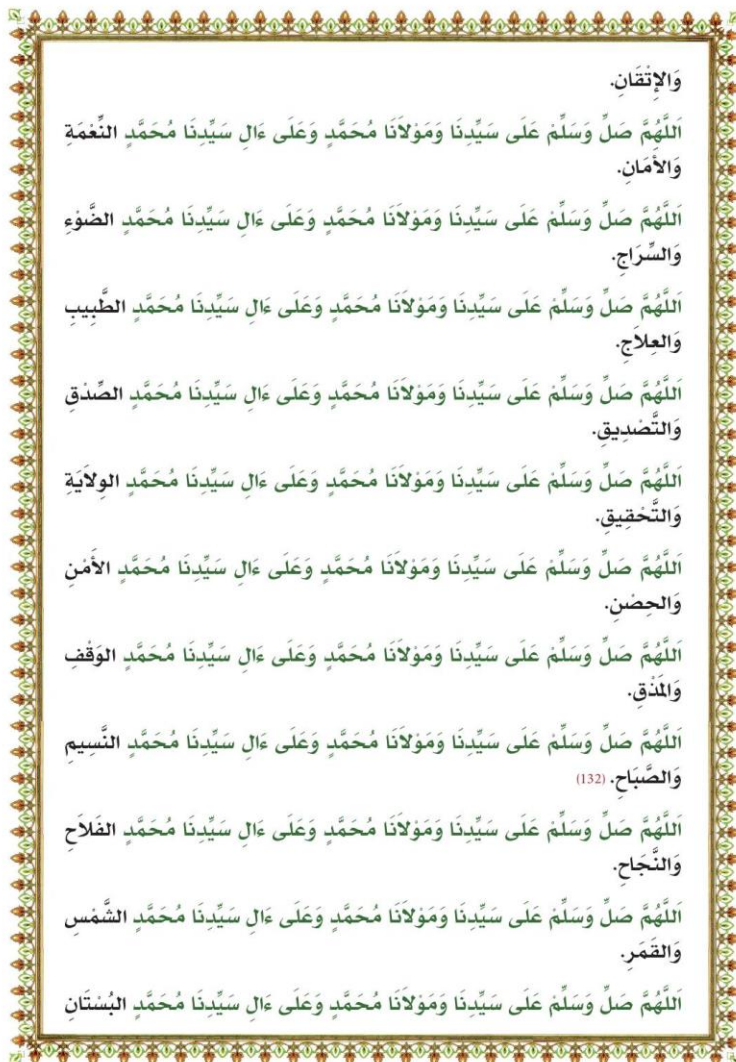 وَالإِتْقَانِ.
اَللَّهُمَّ صَلِّ وَسَلِّمْ عَلَى سَيِّدِنَا وَمَوْلاَنَا مُحَمَّدٍ وَعَلَى ءَالِ سَيِّدِنَا مُحَمَّدٍ النِّعْمَةِ
وَالأَمَانِ.
اَللَّهُمَّ صَلِّ وَسَلِّمْ عَلَى سَيِّدِنَا وَمَوْلاَنَا مُحَمَّدٍ وَعَلَى ءَالِ سَيِّدِنَا مُحَمَّدٍ الضَّوْءِ
وَالسِّرَاجِ.
اَللَّهُمَّ صَلِّ وَسَلِّمْ عَلَى سَيِّدِنَا وَمَوْلاَنَا مُحَمَّدٍ وَعَلَى ءَالِ سَيِّدِنَا مُحَمَّدٍ الطَّبِيبِ
وَالعِلاَجِ.
اَللَّهُمَّ صَلِّ وَسَلِّمْ عَلَى سَيِّدِنَا وَمَوْلاَنَا مُحَمَّدٍ وَعَلَى ءَالِ سَيِّدِنَا مُحَمَّدٍ الصِّدْقِ
وَالتَّصْدِيقِ.
اَللَّهُمَّ صَلِّ وَسَلِّمْ عَلَى سَيِّدِنَا وَمَوْلاَنَا مُحَمَّدٍ وَعَلَى ءَالِ سَيِّدِنَا مُحَمَّدٍ الوِلاَيَةِ
وَالتَّحْقِيقِ.
اَللَّهُمَّ صَلِّ وَسَلِّمْ عَلَى سَيِّدِنَا وَمَوْلاَنَا مُحَمَّدٍ وَعَلَى ءَالِ سَيِّدِنَا مُحَمَّدٍ الأَمْنِ
وَالحِصْنِ.
اَللَّهُمَّ صَلِّ وَسَلِّمْ عَلَى سَيِّدِنَا وَمَوْلاَنَا مُحَمَّدٍ وَعَلَى ءَالِ سَيِّدِنَا مُحَمَّدٍ الوَقْفِ
وَالمَذْقِ.
اَللَّهُمَّ صَلِّ وَسَلِّمْ عَلَى سَيِّدِنَا وَمَوْلاَنَا مُحَمَّدٍ وَعَلَى ءَالِ سَيِّدِنَا مُحَمَّدٍ النَّسِيمِ
وَالصَّبَاحِ. (132)
اَللَّهُمَّ صَلِّ وَسَلِّمْ عَلَى سَيِّدِنَا وَمَوْلاَنَا مُحَمَّدٍ وَعَلَى ءَالِ سَيِّدِنَا مُحَمَّدٍ الفَلاَحِ
وَالنَّجَاحِ.
اَللَّهُمَّ صَلِّ وَسَلِّمْ عَلَى سَيِّدِنَا وَمَوْلاَنَا مُحَمَّدٍ وَعَلَى ءَالِ سَيِّدِنَا مُحَمَّدٍ الشَّمْسِ
وَالقَمَرِ.
اَللَّهُمَّ صَلِّ وَسَلِّمْ عَلَى سَيِّدِنَا وَمَوْلاَنَا مُحَمَّدٍ وَعَلَى ءَالِ سَيِّدِنَا مُحَمَّدٍ البُسْتَانِ